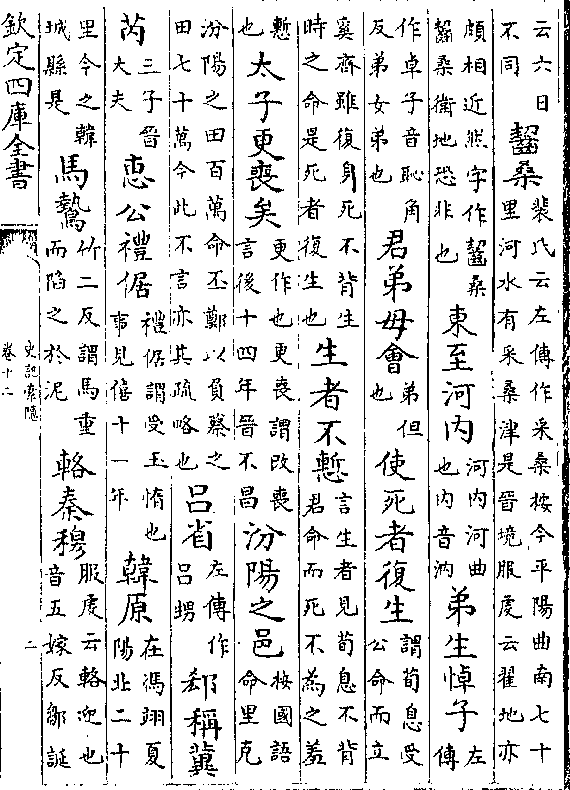 云六日不同齧桑裴氏云左傳作采桑桉今平陽曲南七十里河水有采桑津是晉境服虔云翟地亦
頗相近然字作齧桑齧桑衞地恐非也東至河内河内河曲也内音汭弟生悼子左傳
作卓子音恥角反弟女弟也君弟毋會弟但也使死者復生謂荀息受公命而立
奚齊雖復身死不背生時之命是死者復生也生者不慙言生者見荀息不背君命而死不為之羞
慙也太子更喪矣更作也更喪謂改喪言後十四年晉不昌汾陽之邑桉國語命里克
汾陽之田百萬命丕鄭以負蔡之田七十萬今此不言亦其疏略也吕省左傳作吕甥郄稱冀
芮三子晉大夫惠公禮倨禮倨謂受玉惰也事見僖十一年韓原在馮翊夏陽北二十
里今之韓城縣是馬驇竹二反謂馬重而陷之於泥輅秦穆服虔云輅迎也音五嫁反鄒誕
欽定四庫全書
史記索隱
卷十二
二